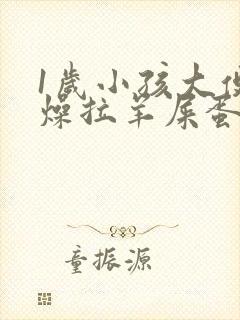 1歲小孩大便
燥拉羊屎蛋
童振源